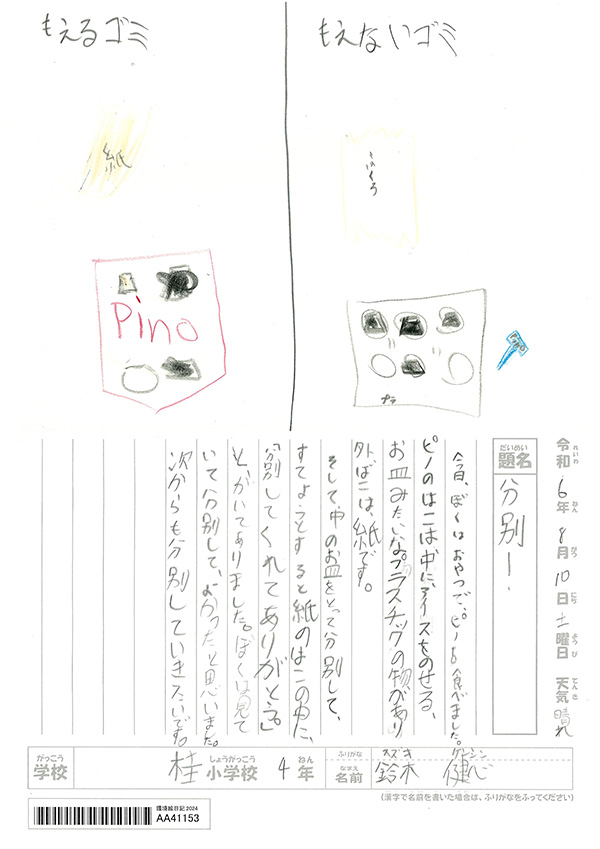 もえるゴミ
もえないゴミ
紙
ふくろ
Pino
プラ
令和6年8月10日土曜日 天気 晴れ
れいわ ねん がつ にち ようび てんき
だいめい
題名
分別!
今日、ぼくはおやつで、ピノを食べました。
ピノのはこは中に、アイスをのせる、
お皿みたいな。プラスチックの物があり
外ばこは、紙です。
そして中のお皿をとって分別して、
すてようとすると紙のはこの中に、
「分別してくれてありがとう。」
とかいてありました。ぼくは見て
いて分別して、よかったと思いました。
次からも分別していきたいです。
がっこう しょうがっこう ねん
学校 桂小学校 4年
ふりがな スズキ ケンシン
なまえ
名前 鈴木 健心
(漢字で名前を書いた場合は、ふりがなをふってください)
環境絵日記2024
AA41153